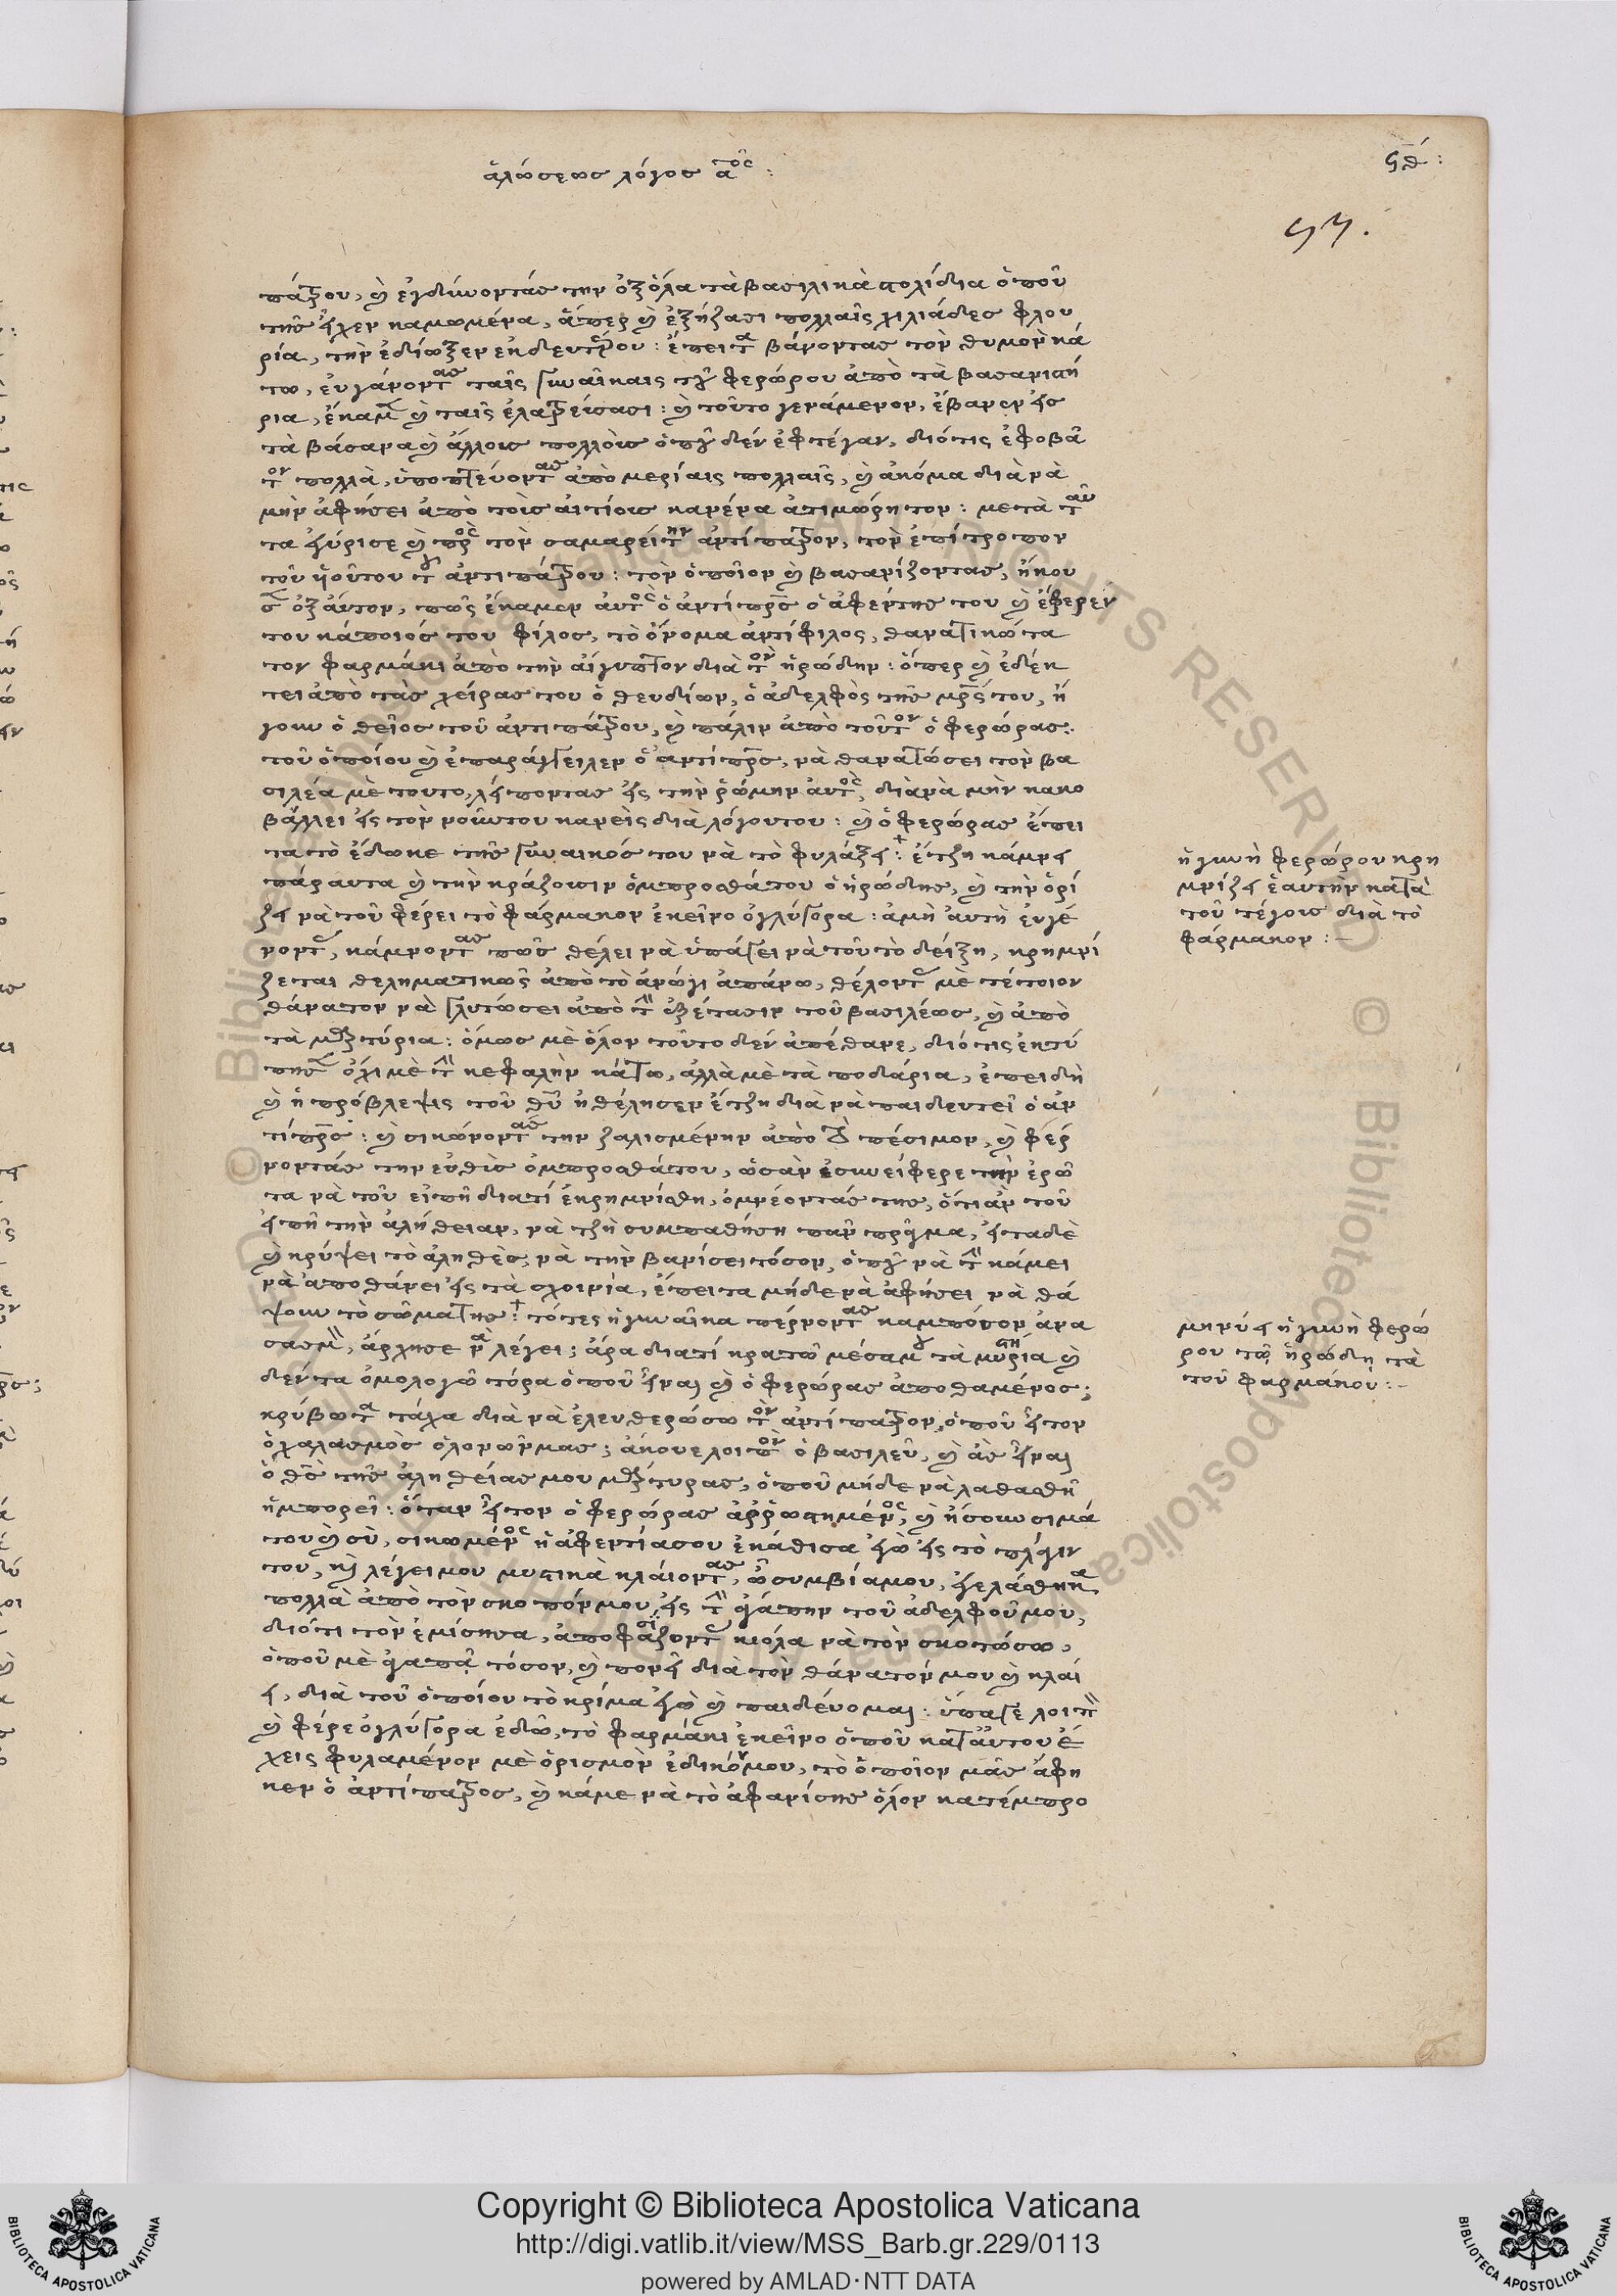 ἁλώσεως λόγος αος :
ϟθ :
97.
πάτρου, καὶ ἐγδύνοντάς την ὀξόλα τὰ βασιλικὰ στολίδια ὁποῦ
τῆς εἶχεν καμωμένα, ἅπερ καὶ ἐξήζασι πολλαῖς χιλιάδες φλου
ρία, τὴν ἐδίωξεν ἐκ δευτέρου : ἔπειτα βάνοντας τὸν θυμὸν κά
τω, ἐυγάνοντας ταῖς γυναῖκαις τοῦ φερώρου ἀπὸ τὰ βασανιστή
ρια, ἔκαμε καὶ ταῖς ἐλατρεύσασι : καὶ τοῦτο γενάμενον, ἔβανεν εἰς
τὰ βάσανα καὶ ἄλλους πολλοὺς ὁποῦ δέν ἐφτέγαν, διότις ἐφοβᾶ
τον πολλὰ, ὑποπτεύοντας ἀπὸ μερίαις πολλαῖς, καὶ ἀκόμα διὰ νὰ
μὴν ἀφήσει ἀπὸ τοὺς αἰτίους κανένα ἀτιμώρητον : μετὰ ταῦ
τα ἐγύρισε καὶ πρὸς τὸν σαμαρείτην ἀντίπατρον, τὸν ἐπίτροπον
τοῦ ἡοῦτου τοῦ ἀντιπάτρου : τὸν ὁποῖον καὶ βασανίζοντας, ἤκου
σε ὀξἀύτον, πῶς ἔκαμεν ἀυτὸς ὁ ἀντίπρος ὁ ἀφέντης του καὶ ἔφερεν
του κάποιός του φίλος, τὸ ὄνομα ἀντίφιλος, θανατικώτα
τον φαρμάκι ἀπὸ τὴν αἴγυπτον διὰ τὸν ἡρώδην : ὅπερ καὶ ἐδέκ
τει ἀπὸ τὰς χείρας του ὁ θευδίων, ὁ ἀδελφὸς τῆς μρός του, ἤ
γουν ὁ θεῖος τοῦ ἀντιπάτρου, καὶ πάλιν ἀπὸ τοῦτον ὁ φερώρας :
τοῦ ὁποίου καὶ ἐπαράγγειλεν ὁ ἀντίπρος, νὰ θανατώσει τὸν βα
σιλέα μὲ τουτο, λείποντας εἰς τὴν ῥώμην ἀυτὸς, διὰνὰ μὴν κακο
βάλλει εἰς τὸν νοῦντου κανεὶς διὰ λόγουτου : καὶ ὁ φερώρας ἔπει
τα τὸ ἔδωκε τῆς γυναικός του νὰ τὸ φυλάξει : ἔτζη κάμνει
πάραυτα καὶ τὴν κράζουσιν ὀμπροσθάτου ὁ ἡρώδης, καὶ τὴν ὁρί
ζει νὰ τοῦ φέρει τὸ φάρμακον ἐκεῖνο ὀγλύγορα : ἀμὴ ἀυτὴ ἐυγέ
νοντας, κάμνοντας πῶς θέλει νὰ ὑπάγει νὰ τοῦ τὸ δείξη, κρημνί
ζεται θεληματικῶς ἀπὸ τὸ ἀνώγι ἀπάνω, θέλοντας μὲ τέτοιον
θάνατον νὰ γλυτώσει ἀπὸ τὴν ἐξέτασιν τοῦ βασιλέως, καὶ ἀπὸ
τὰ μαρτύρια : ὅμως μὲ ὅλον τοῦτο δεν ἀπέθανε, διότις ἐκτύ
πησε ὄχι μὲ τὴν κεφαλὴν κάτω, ἀλλὰ μὲ τὰ ποδάρια, ἐπειδὴ
καὶ ἡ πρόβλεψις τοῦ θῦ ἠθέλησεν ἔτζη διὰ νὰ παιδευτεῖ ὁ ἀν
τίπρος : καὶ σικώνοντας την ζαλισμένην ἀπὸ τὸ πέσιμον, καὶ φέρ
νοντάς την εὐθὺς ὀμπροσθάτου, ὡσὰν ἐσυνείφερε τὴν ἐρῶ
τα νὰ τοῦ εἰπῆ διατί ἐκρημνίσθη, ὀμνέοντάς της, ὅτι ἀν τοῦ
εἰπῆ τὴν ἀλήθειαν, νὰ τζὴ συμπαθήση πᾶν πρᾶγμα, εἰταδὲ
καὶ κρύψει τὸ ἀληθὲς, νὰ τὴν βανίσει τόσον, ὁποῦ νὰ τὴν κάμει
νὰ ἀποθάνει εἰς τὰ σχοινία, ἔπειτα μήδε νὰ ἀφήσει νὰ θά
ψουν τὸ σῶματης : τότες ἡ γυναῖκα πέρνοντας καμπόσον ἀνα
σασμὸν, ἄρχησε νὰ λέγει ; ἄρα διατί κρατῶ μέσαμου τὰ μυστήρια καὶ
δέν τα ὁμολογῶ τόρα ὁποῦ εἶναι καὶ ὁ φερώρας ἀποθαμένος ;
κρύβω τα τάχα διὰ νὰ ἐλευθερώσω τὸν ἀντίπατρον, ὁποῦ εἶτον
ὁ χαλασμὸς ὁλονῶνμας ; ἀκουε λοιπὸν ὁ βασιλεῦ, καὶ ἀς εἶναι
ὁ θς τῆς ἀληθείας μου μάρτυρας, ὁποῦ μήδε νὰ λαθασθῆ
ἠμπορεῖ : ὅταν εἶτον ὁ φερώρας ἀῤῥωστημένος, καὶ ἤσουν σιμά
του καὶ σὺ, σικωμένος ἡ ἀφεντίασου ἐκάθισα ἐγὼ εἰς τὸ πλάγιν
του, καὶ λέγει μου μυστικὰ κλάιοντας, ὦ συμβίαμου, ἐγελάσθηκα
πολλὰ ἀπὸ τὸν σκοπόνμου, εἰς τὴν ἀγάπην τοῦ ἀδελφοῦμου,
διότι τὸν ἐμίσησα, ἀποφασίζοντας κιόλα νὰ τὸν σκοτώσω,
ὁποῦ μὲ ἀγαπᾶ τόσον, καὶ πονεῖ διὰ τὸν θάνατόν μου καὶ κλαί
ει, διὰ τοῦ ὁποίου τὸ κρίμα ἐγὼ καὶ παιδέυομαι : ὕπαγε λοιπὸν
καὶ φέρε ὀγλύγορα ἐδῶ, τὸ φαρμάκι ἐκεῖνο ὁποῦ κατἀυτου ἔ
χεις φυλαμένον μὲ ὁρισμὸν ἐδικόνμου, τὸ ὁποῖον μᾶς ἄφη
κεν ὁ ἀντίπατρος, καὶ κάμε νὰ τὸ ἀφανίσης ὅλον κατέμπρο
ἡ γυνὴ φερώρου κρη
μνίζει ἑαυτὴν κατὰ
τοῦ τέγους διὰ τὸ
φάρμακον : –
μηνύει ἡ γυνὴ φερώ
ρου τῷ ἡρώδῃ τὰ
τοῦ φαρμάκου : –
© Biblioteca Apostolica Vaticana ALL RIGHTS RESERVED
Copyright © Biblioteca Apostolica Vaticana
http://digi.vatlib.it/view/MSS_Barb.gr.229/0113
powered by AMLAD·NTT DATA
BIBLIOTECA APOSTOLICA VATICANA
BIBLIOTECA APOSTOLICA VATICANA